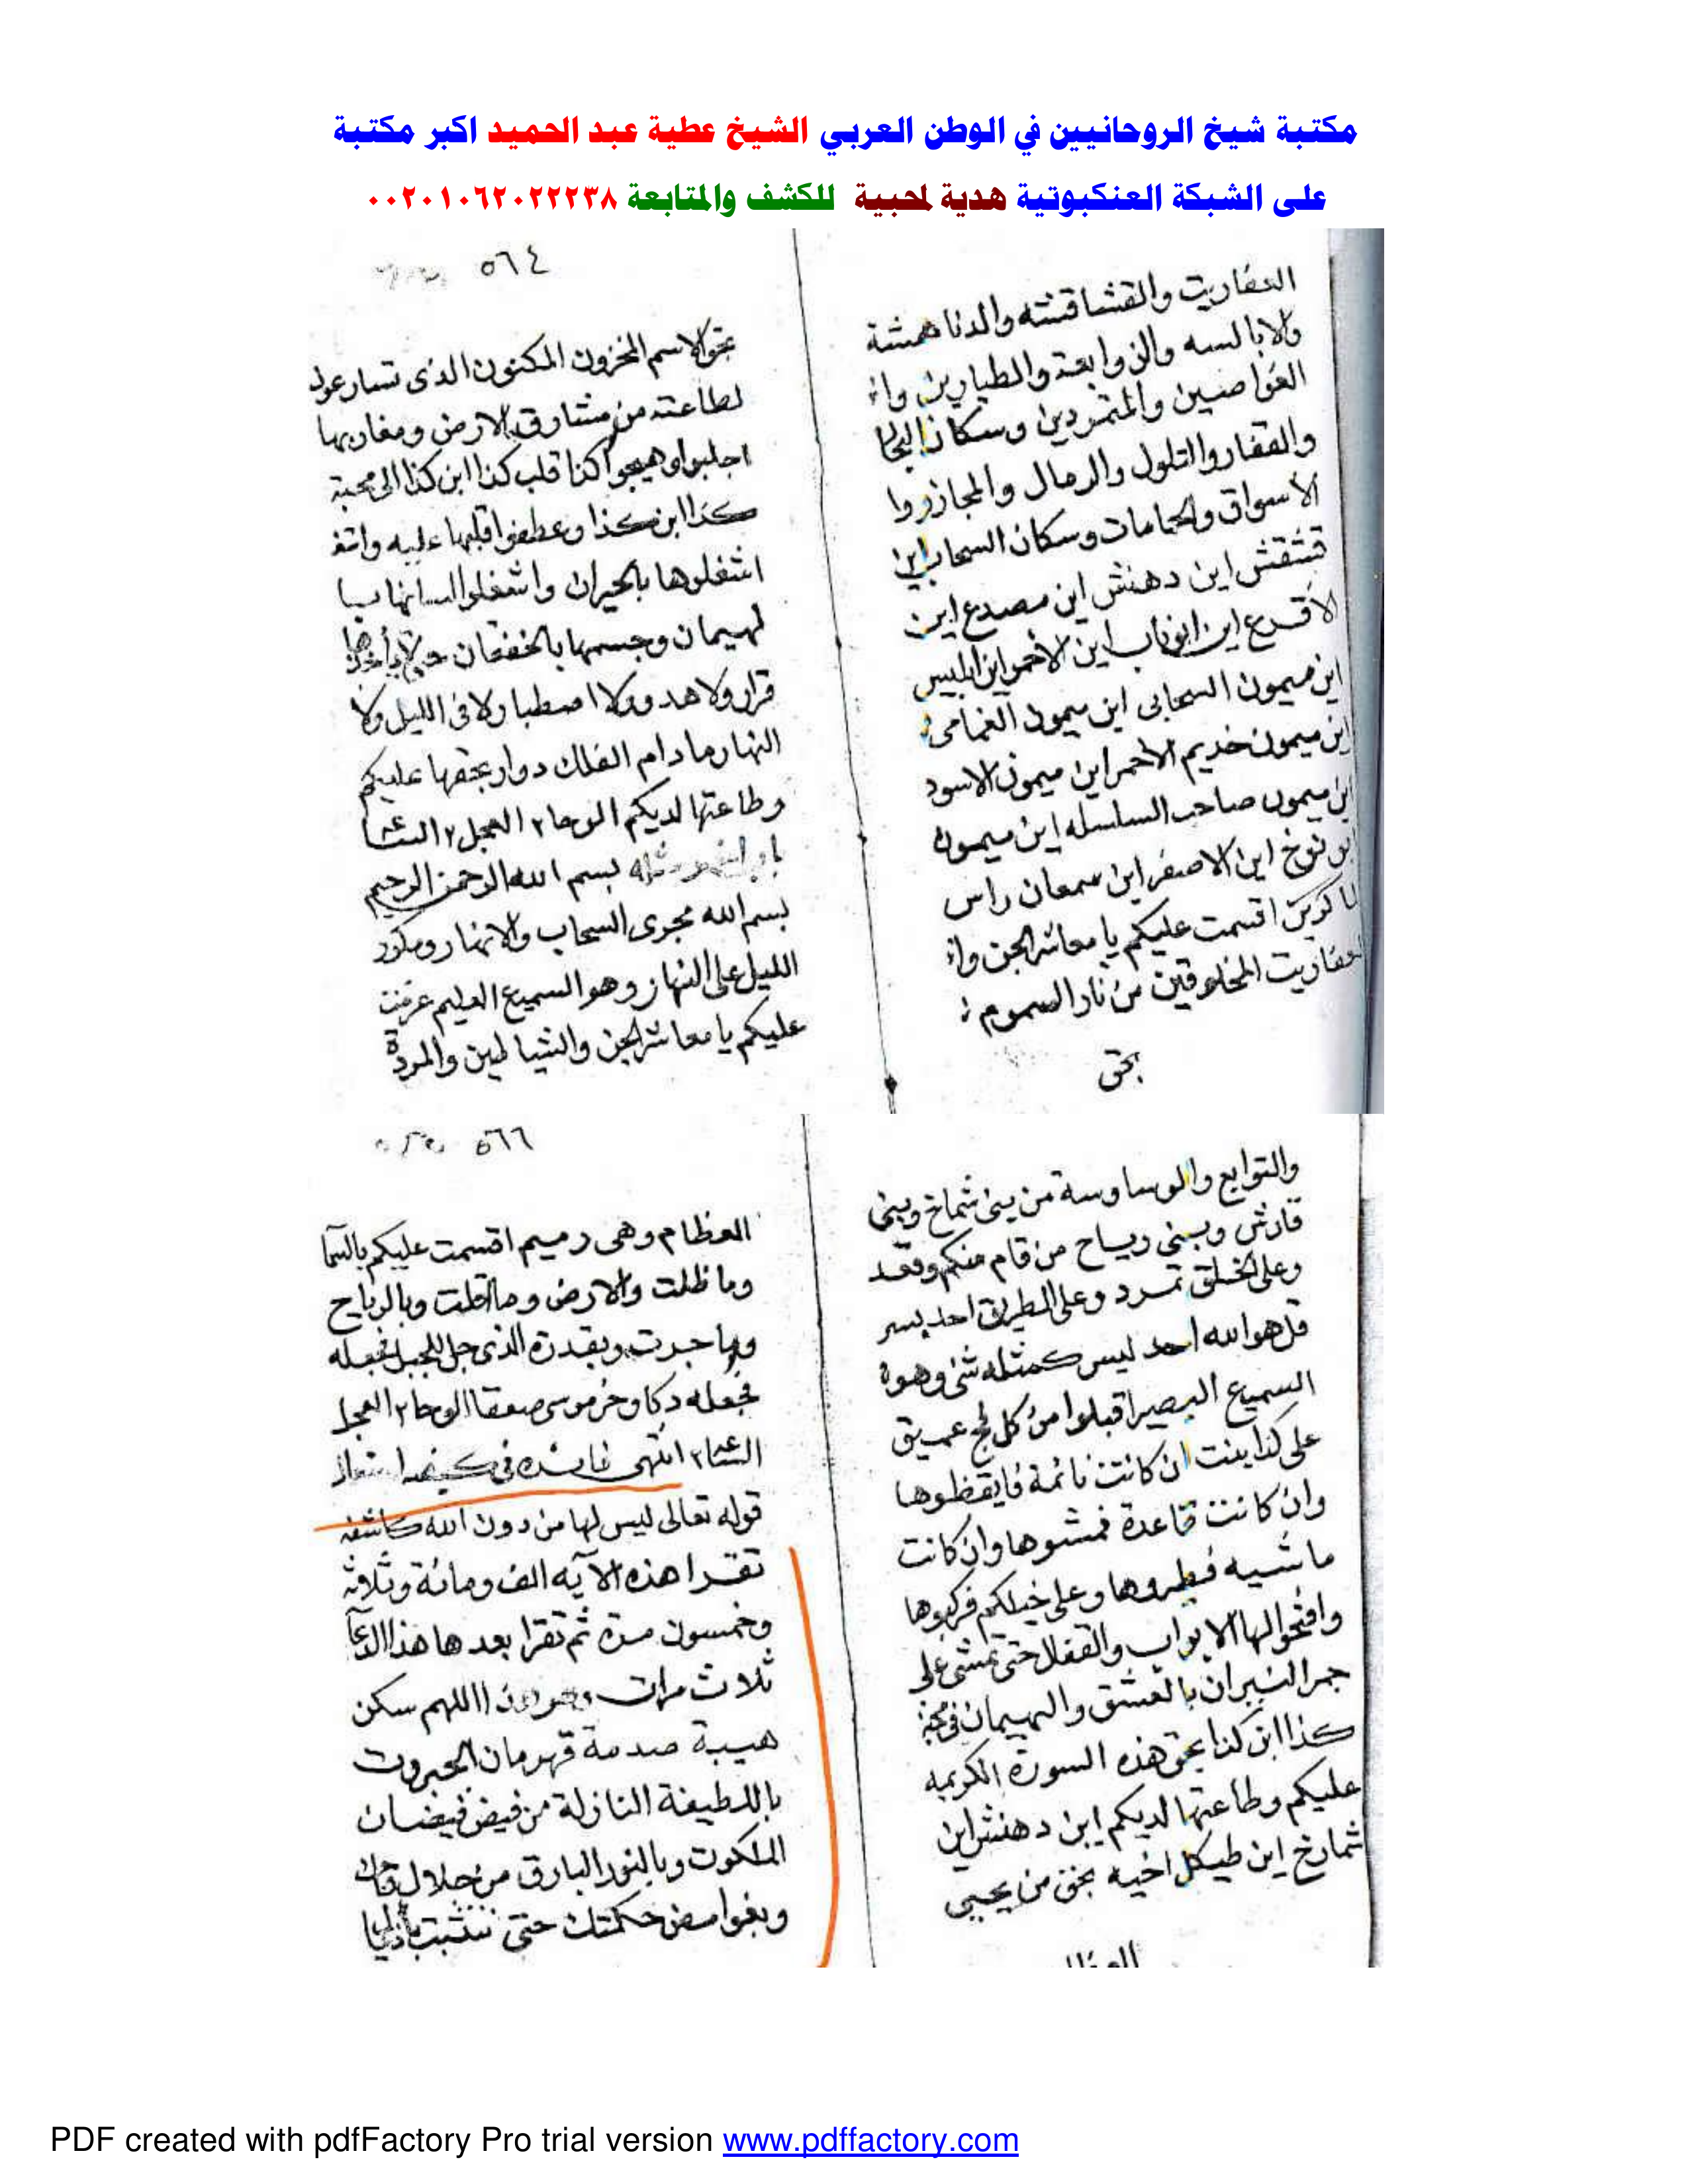 مكتبة شيخ الروحانيين في الوطن العربي الشيخ عطية عبد الحميد اكبر مكتبة
على الشبكة العنكبوتية هدية لمحبية للكشف والمتابعة ٠٠٢٠١٠٦٢٠٢٢٢٣٨
العفاريت والقشاقشه والدناهشة
والابالسه والزوابعة والطيارين
الغواصين والمتمردين وسكان
والقفار والتلول والرمال
الاسواق والحمامات وسكان السحاب اين
قشقش اين دهنش اين مصدع اين
الاقرع اين اين الاحمر اين ابليس
اين ميمون السحابى اين ميمون الغمامى
اين ميمون خديم الاحمر اين ميمون الاسود
اين ميمون صاحب السلسله اين ميمون
نوخ اين الاصفر اين سمعان راس
اقسمت عليكم يا معاشر الجن
المخلوقين من نار السموم
بحق
٥٦٤
بحق الاسم المخزون المكنون الذى تسارعون
لطاعته من مشارق الارض ومغاربها
اجلبوا وهيجوا كذا قلب كذا ابن كذا الى محبة
كذا ابن كذا وعطفوا قلبها عليه
اشغلوها بالحيران واشغلوا لسانها
لهيمان وجسمها بالخفقان
قرار ولا هدوولا اصطبار لا فى الليل ولا
النهار ما دام الفلك دوار بحقها عليكم
وطاعتها لديكم الوحا٢ العجل٢
بسم الله الرحمن الرحيم
بسم الله مجرى السحاب والانهار ومكور
الليل على النهار وهو السميع العليم عزمت
عليكم يا معاشر الجن والشياطين والمردة
والتوابع والوساوسة من بنى شماخ وبنى
قارش وبنى رياح من قام منكم وقعد
وعلى الخلق تمرد وعلى الطريق احد
قل هو الله احد ليس كمثله شئ وهو
السميع البصير اقبلوا من كل فج عميق
على كذا بنت ان كانت نائمة فايقظوها
وان كانت قاعدة فمشوها وان كانت
ماشيه فطيروها وعلى خيلكم فركبوها
وافتحوا لها الابواب والقفال حتى تمشى على
جمر النيران بالعشق والهيمان فى محبة
كذا ابن كذا بحق هذه السورة الكريمه
عليكم وطاعتها لديكم اين دهنش اين
شمارخ اين طيكل اخيه بحق من يحيى
٥٦٦
العظام وهى رميم اقسمت عليكم بالسما
وما ظلت والارض وما اقلت وبالرياح
وما جرت وبقدرة الذى للجبل
فجعله دكا وخر موسى صعقا الوحا٢ العجل
انتهى فائده فى
قوله تعالى ليس لها من دون الله كاشفه
تقرا هذه الآيه الف ومائة وثلاثة
وخمسون مرة ثم تقرا بعدها هذا الدعا
ثلاث مرات اللهم سكن
هيبة صدمة قهرمان الجبروت
باللطيفة النازلة من فيض فيضان
الملكوت وبالنور البارق من جلال
وبغوامض حكمتك حتى نتشبث
PDF created with pdfFactory Pro trial version www.pdffactory.com